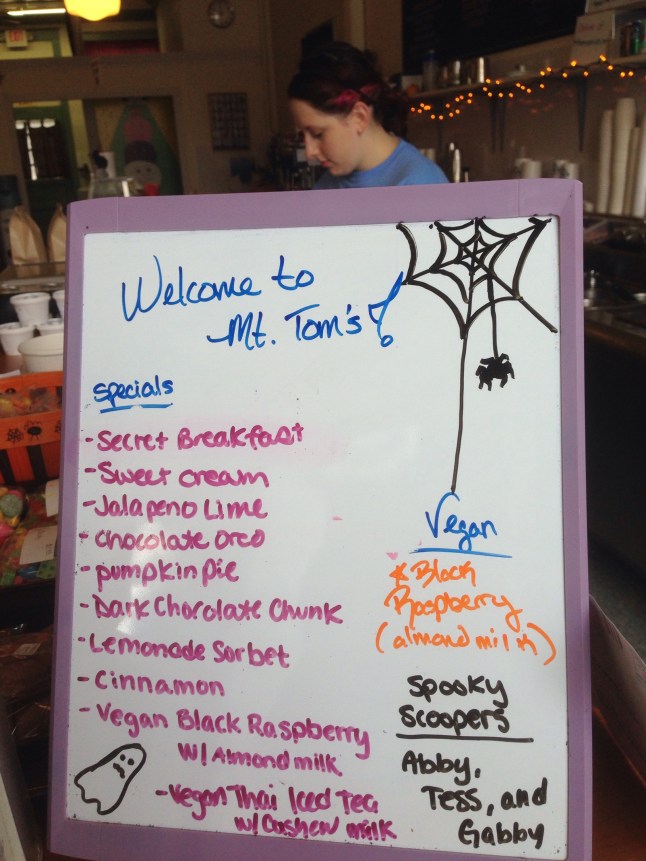 Welcome to
Mt. Tom's!
Specials
- Secret Breakfast
- Sweet cream
- Jalapeno Lime
- Chocolate Oreo
- pumpkin pie
- Dark Chocolate Chunk
- Lemonade Sorbet
- Cinnamon
- Vegan Black Raspberry
w/ Almond milk
- Vegan Thai Iced Tea
w/ Cashew milk
Vegan
* Black
Raspberry
(almond milk)
Spooky
Scoopers
Abby,
Tess, and
Gabby